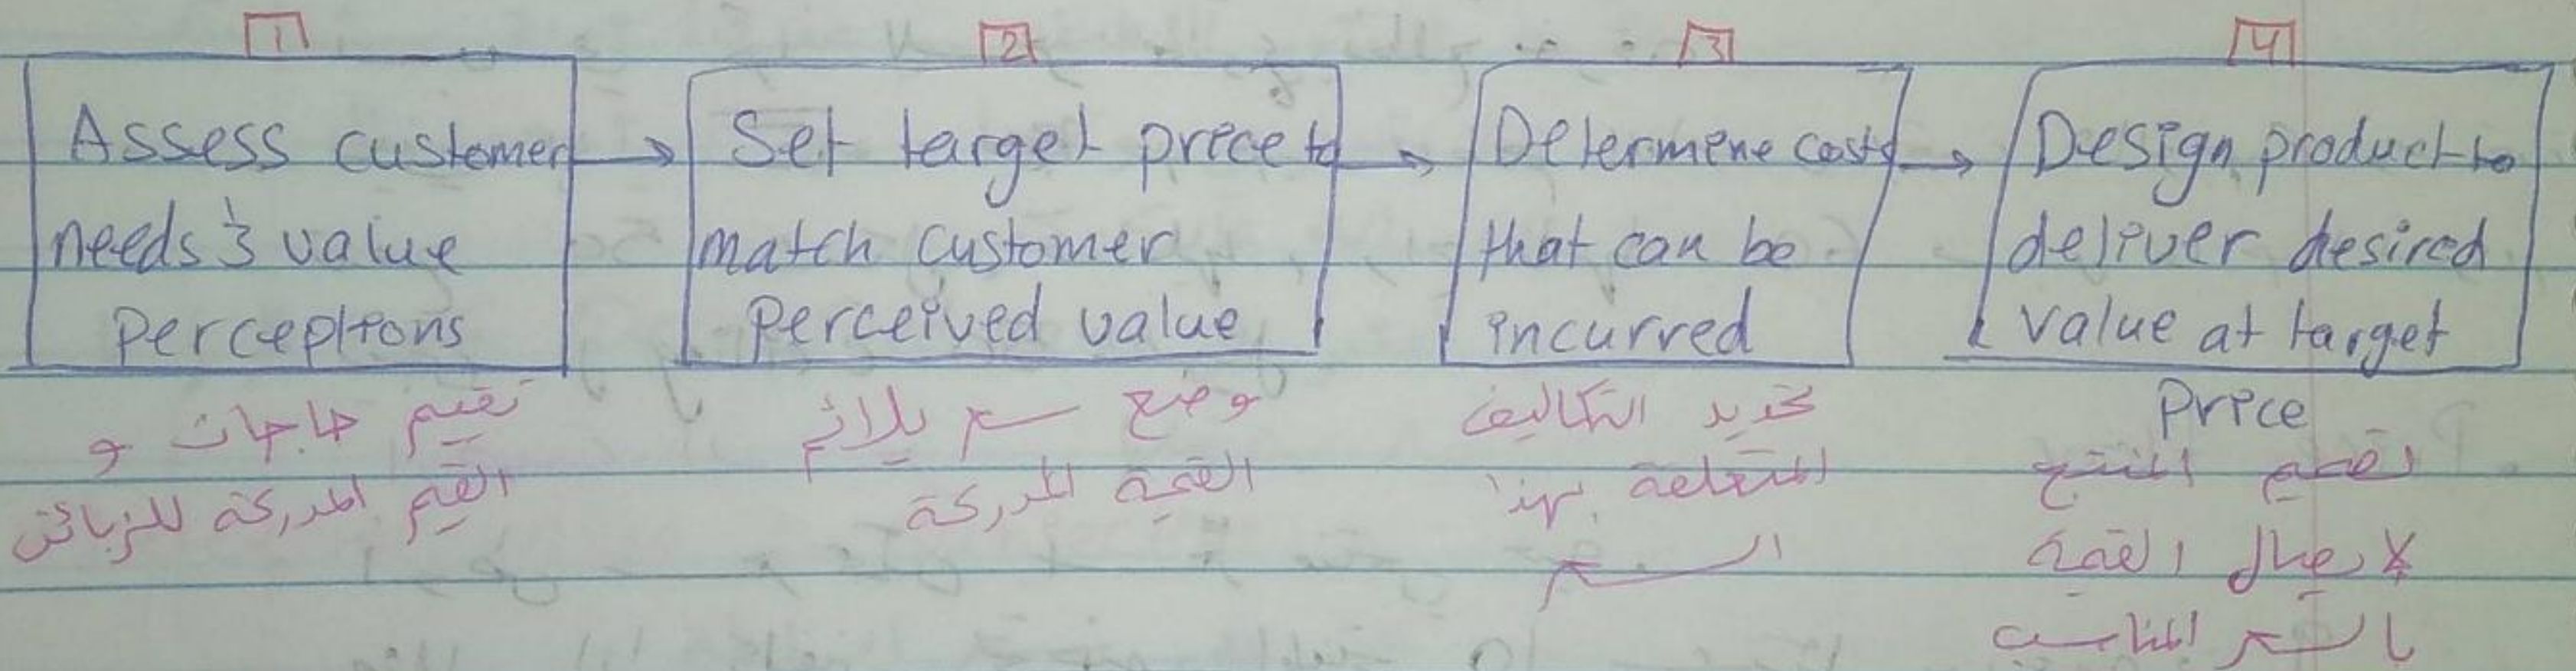 1
Assess customer
needs & value
perceptions
تقييم حاجات و
القيم المدركة للزبائن
2
Set target price to
match customer
perceived value
وضع سعر يلائم
القيمة المدركة
3
Determine costs
that can be
incurred
تحديد التكاليف
المتعلقة بهذا
السعر
4
Design product to
deliver desired
value at target
Price
تصميم المنتج
لايصال القيمة
بالسعر المناسب